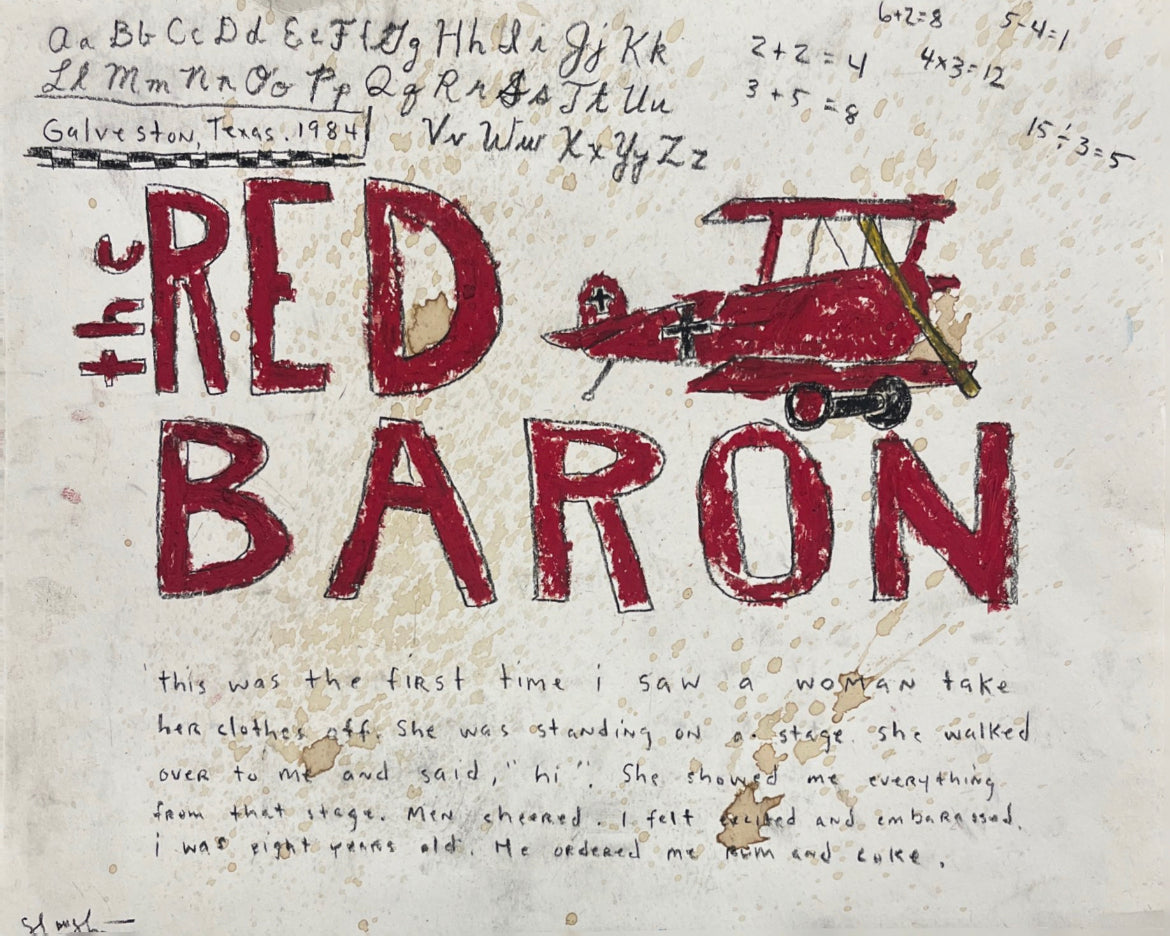 Aa Bb Cc Dd Ee Ff Gg Hh Ii Jj Kk
Ll Mm Nn Oo Pp Qq Rr Ss Tt Uu
Vv Ww Xx Yy Zz
Galveston, Texas. 1984
6+2=8
5-4=1
2+2=4
4x3=12
3+5=8
15÷3=5
the RED
BARON
this was the first time i saw a woman take
her clothes off. She was standing on a stage. She walked
over to me and said, "hi". She showed me everything
from that stage. Men cheered. I felt excited and embarassed.
i was eight years old. He ordered me rum and coke.